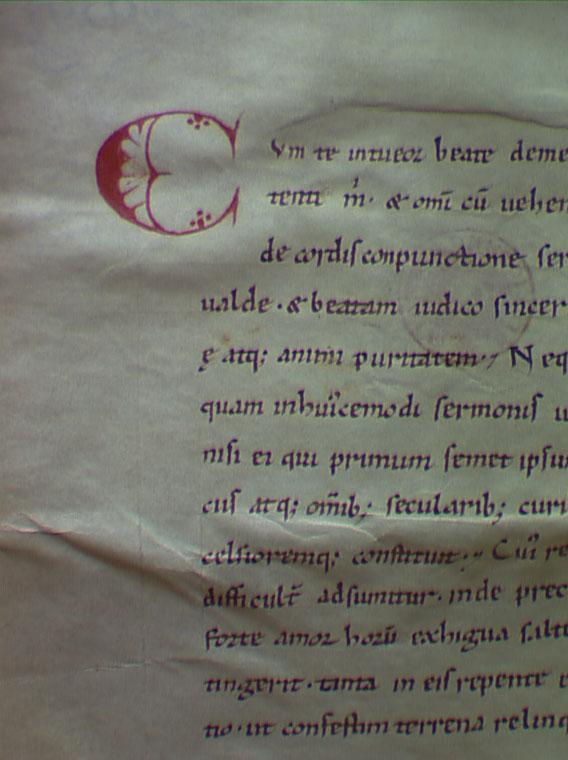 CVm te intueor beate deme
tetrii m̅· & om̅i cū uehem
de cordis conpunctione ser
ualde · & beatam iudico sincer
ę atq; animi puritatem·, Neq
quam inhui᾽cemodi sermonis u
nisi ei qui primum semet ipsu
cus atq; om̅ib; secularib; curi
celsioremq; constituit·, Cui᾽ re
difficult̅ adsumitur· inde prec
forte amor horū exhigua salte
tingerit· tanta in eis repente e
tio· ut confestim terrena relinq